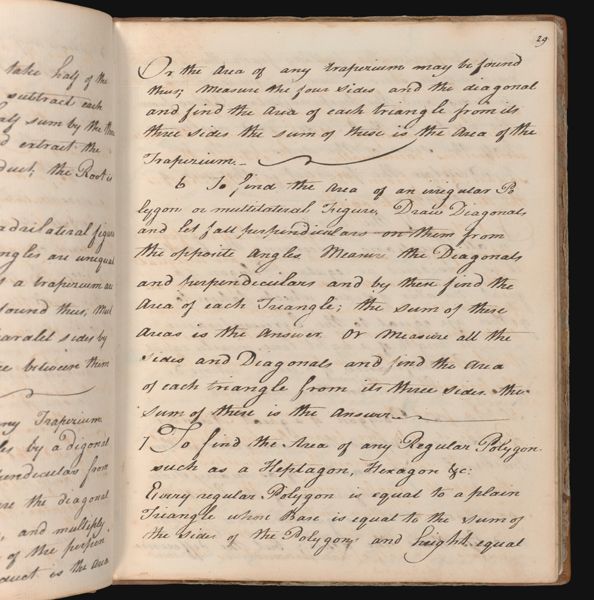 take half of the
subtract each
half sum by the
d extract the
duct, the Root is
adrilateral figure
ngles are unequal
s a trapezium an
found thus, Mul
paralel sides by
ce between them
ny Trapezium
les by a digonal
pendicular from
re the diagonal
, and multiply
of the perpen
duct is the Area
29
Or the Area of any trapezium may be found
thus; Measure the four Sides and the diagonal
and find the Area of each triangle from its
three sides the sum of these is the Area of the
Trapezium.
6 To find the Area of an irregular Po
lygon or multilateral Figure, Draw Diagonals
and let fall perpendiculars on them from
the opposite Angles. Measure the Diagonals
and perpendiculars and by these find the
Area of each Triangle; the sum of these
Areas is the Answer. Or Measure all the
sides and Diagonals and find the Area
of each triangle from its three sides the
sum of these is the Answer
7 To find the Area of any Regular Polygon
such as a Heptagon, Hexagon &c:
Every regular Polygon is equal to a plain
Triangle whose Base is equal to the sum of
the sides of the Polygon and height equal